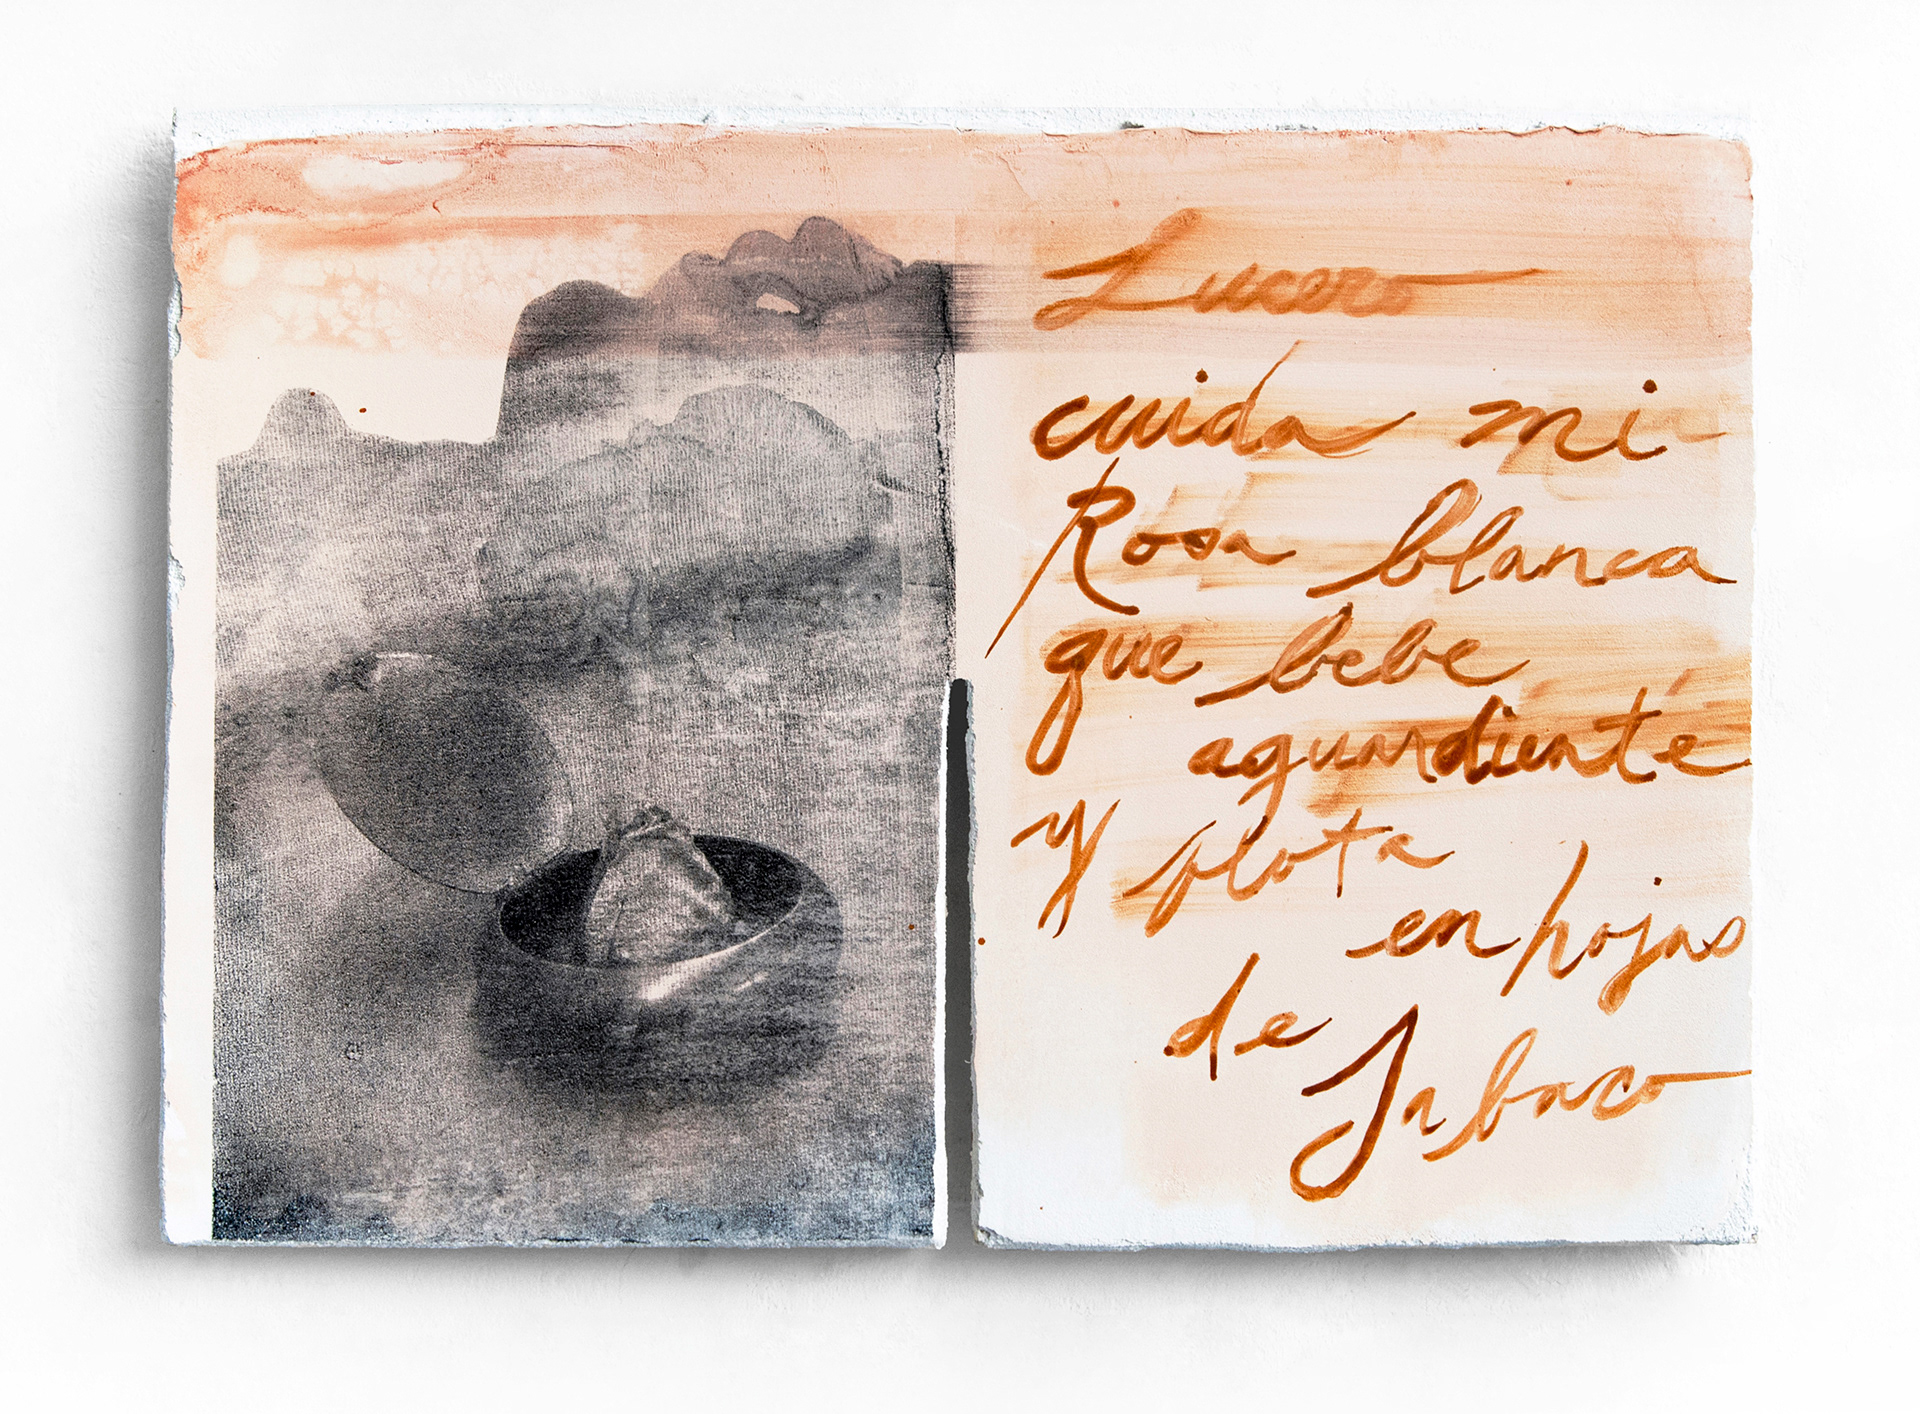 Lucero
cuida mi
Rosa blanca
que bebe
aguardienté
y flota
en hojas
de
Tabaco